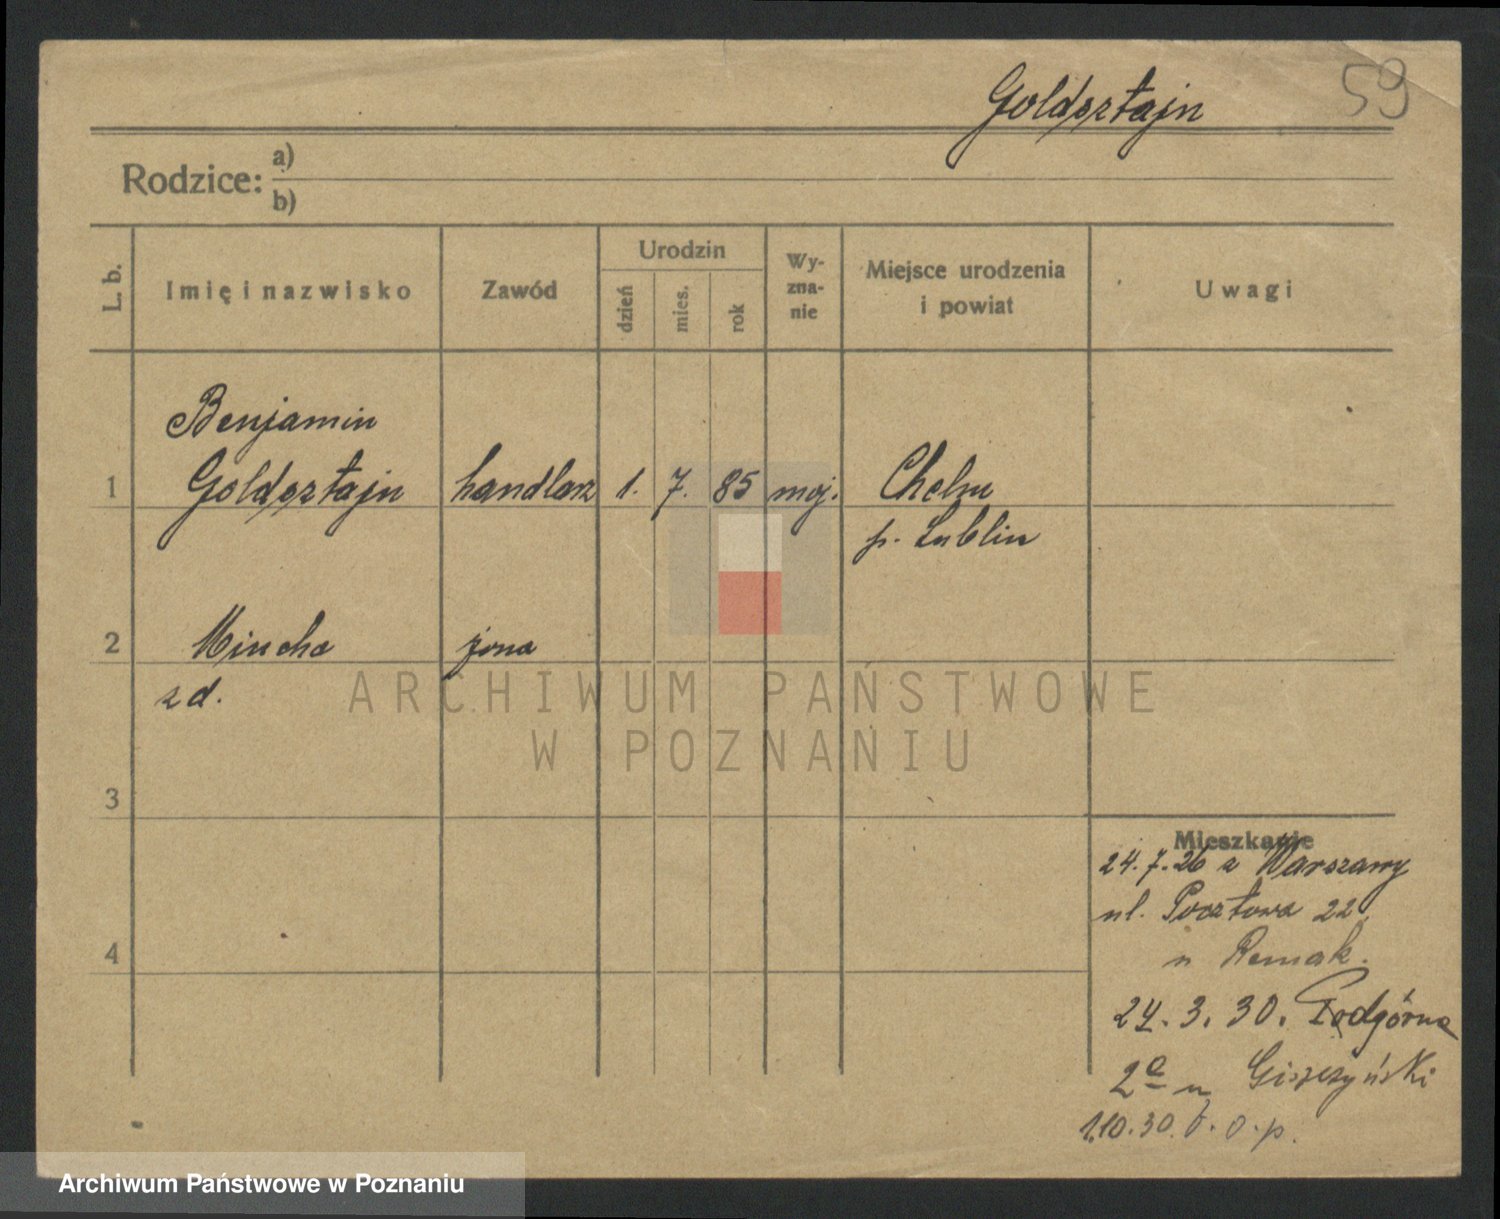 Goldsztajn
59
Rodzice: a)
b)
L. b.
Imię i nazwisko
Zawód
Urodzin
dzień
mies.
rok
Wy-
zna-
nie
Miejsce urodzenia
i powiat
Uwagi
Benjamin
1 Goldsztajn handlarz 1. 7. 85 moj. Chelm
p. Lublin
2 Mincha żona
z d.
ARCHIWUM PAŃSTWOWE
W POZNANIU
3
Mieszkanie
24.7.26 z Warszawy
ul. Pocztowa 22
u Remak.
4
24. 3. 30. Podgórna
2a u
1.10.30. b. o. p.
Archiwum Państwowe w Poznaniu